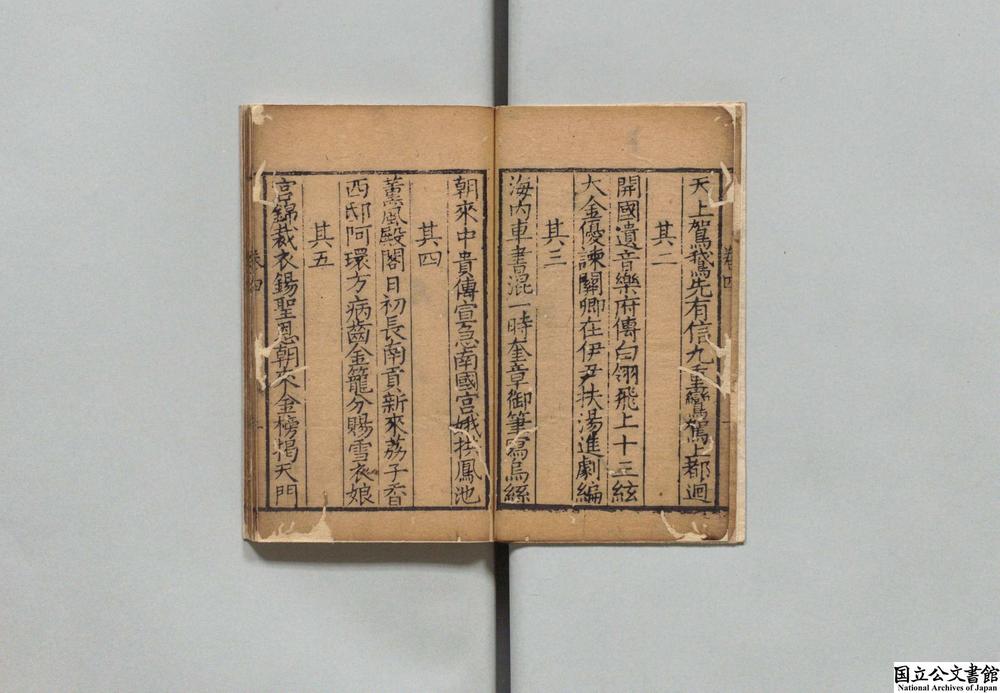 天上駕鵝先有信九重鸞駕上都迴
其二
開國遺音樂府傳白翎飛上十三絃
大金優諫關卿在伊尹扶湯進劇編
其三
海内車書混一時奎章御筆寫烏絲
朝來中貴傳宣急南國宮娥拱鳳池
其四
薰風殿閣日初長南貢新來荔子香
西邸阿環方病齒金籠分賜雪衣娘
其五
宮錦裁衣錫聖恩朝來金榜揭天門
卷四
卷四
国立公文書館
National Archives of Japan